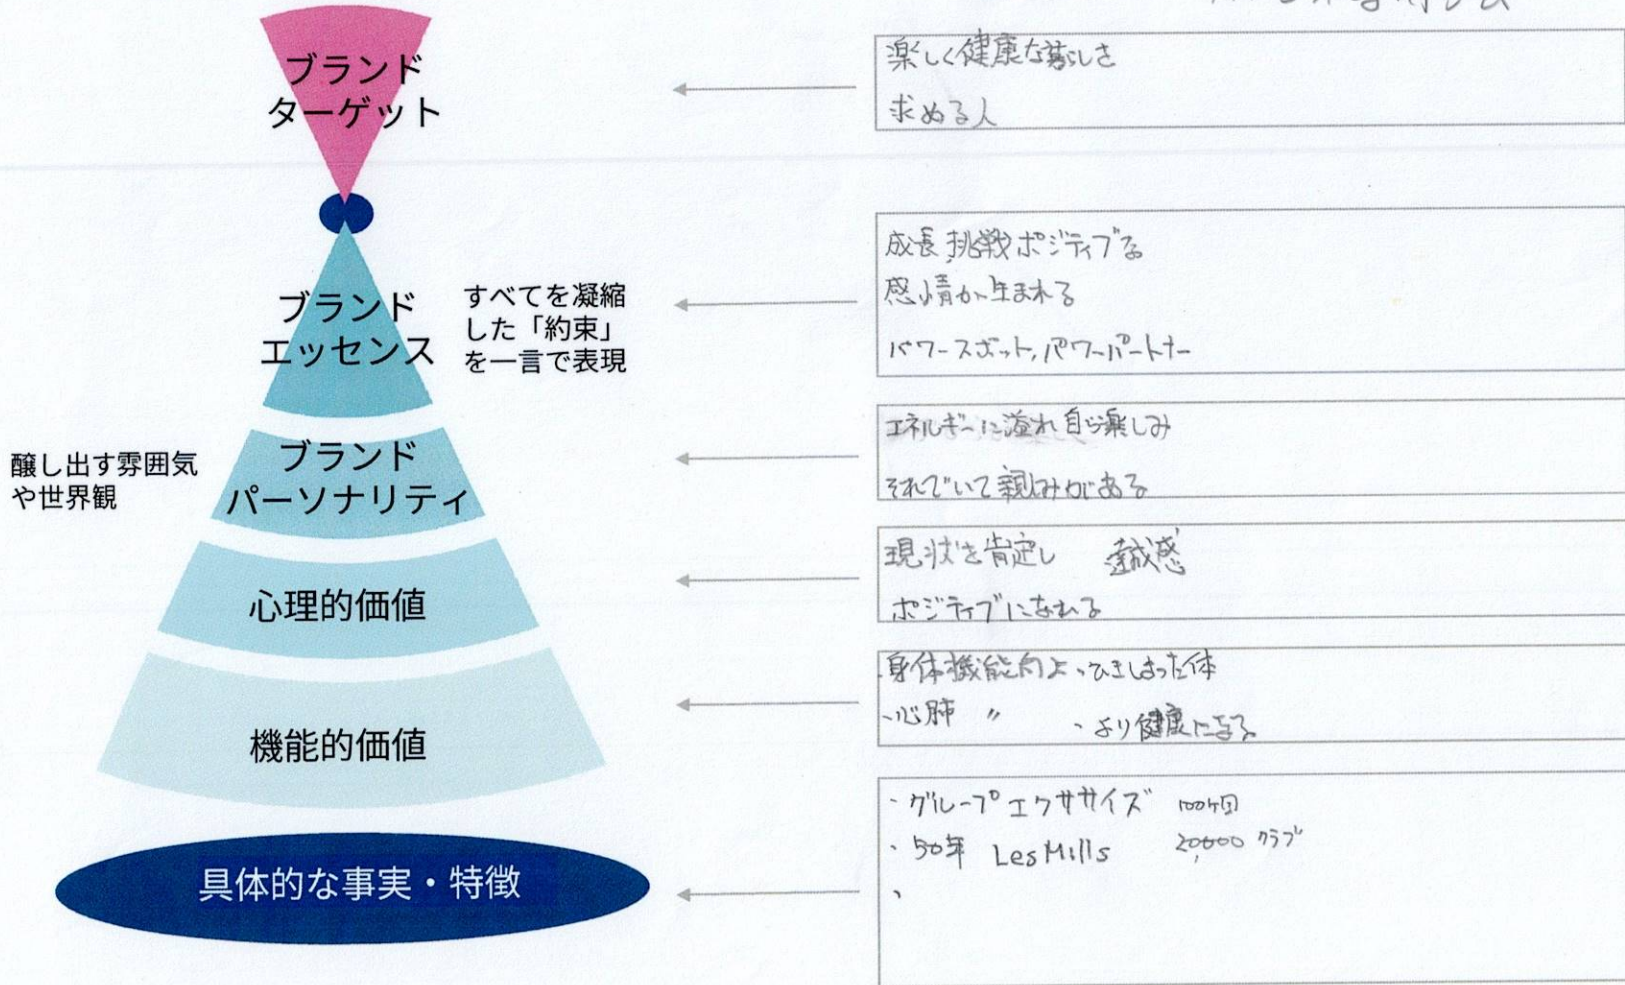 ブランド
ターゲット
楽しく健康な暮しを
求める人
ブランド
エッセンス
すべてを凝縮
した「約束」
を一言で表現
成長 挑戦 ポジティブな
感情が生まれる
パワースポット, パワーパートナー
醸し出す雰囲気
や世界観
ブランド
パーソナリティ
エネルギーに溢れ 自ら楽しみ
それでいて親しみがある
心理的価値
現状を肯定し 達成感
ポジティブになれる
機能的価値
・身体機能向上 ・ひきしまった体
・心肺 〃 ・より健康になる
具体的な事実・特徴
・グループエクササイズ 100ヶ国
・50年 Les Mills 20,000 クラブ
・